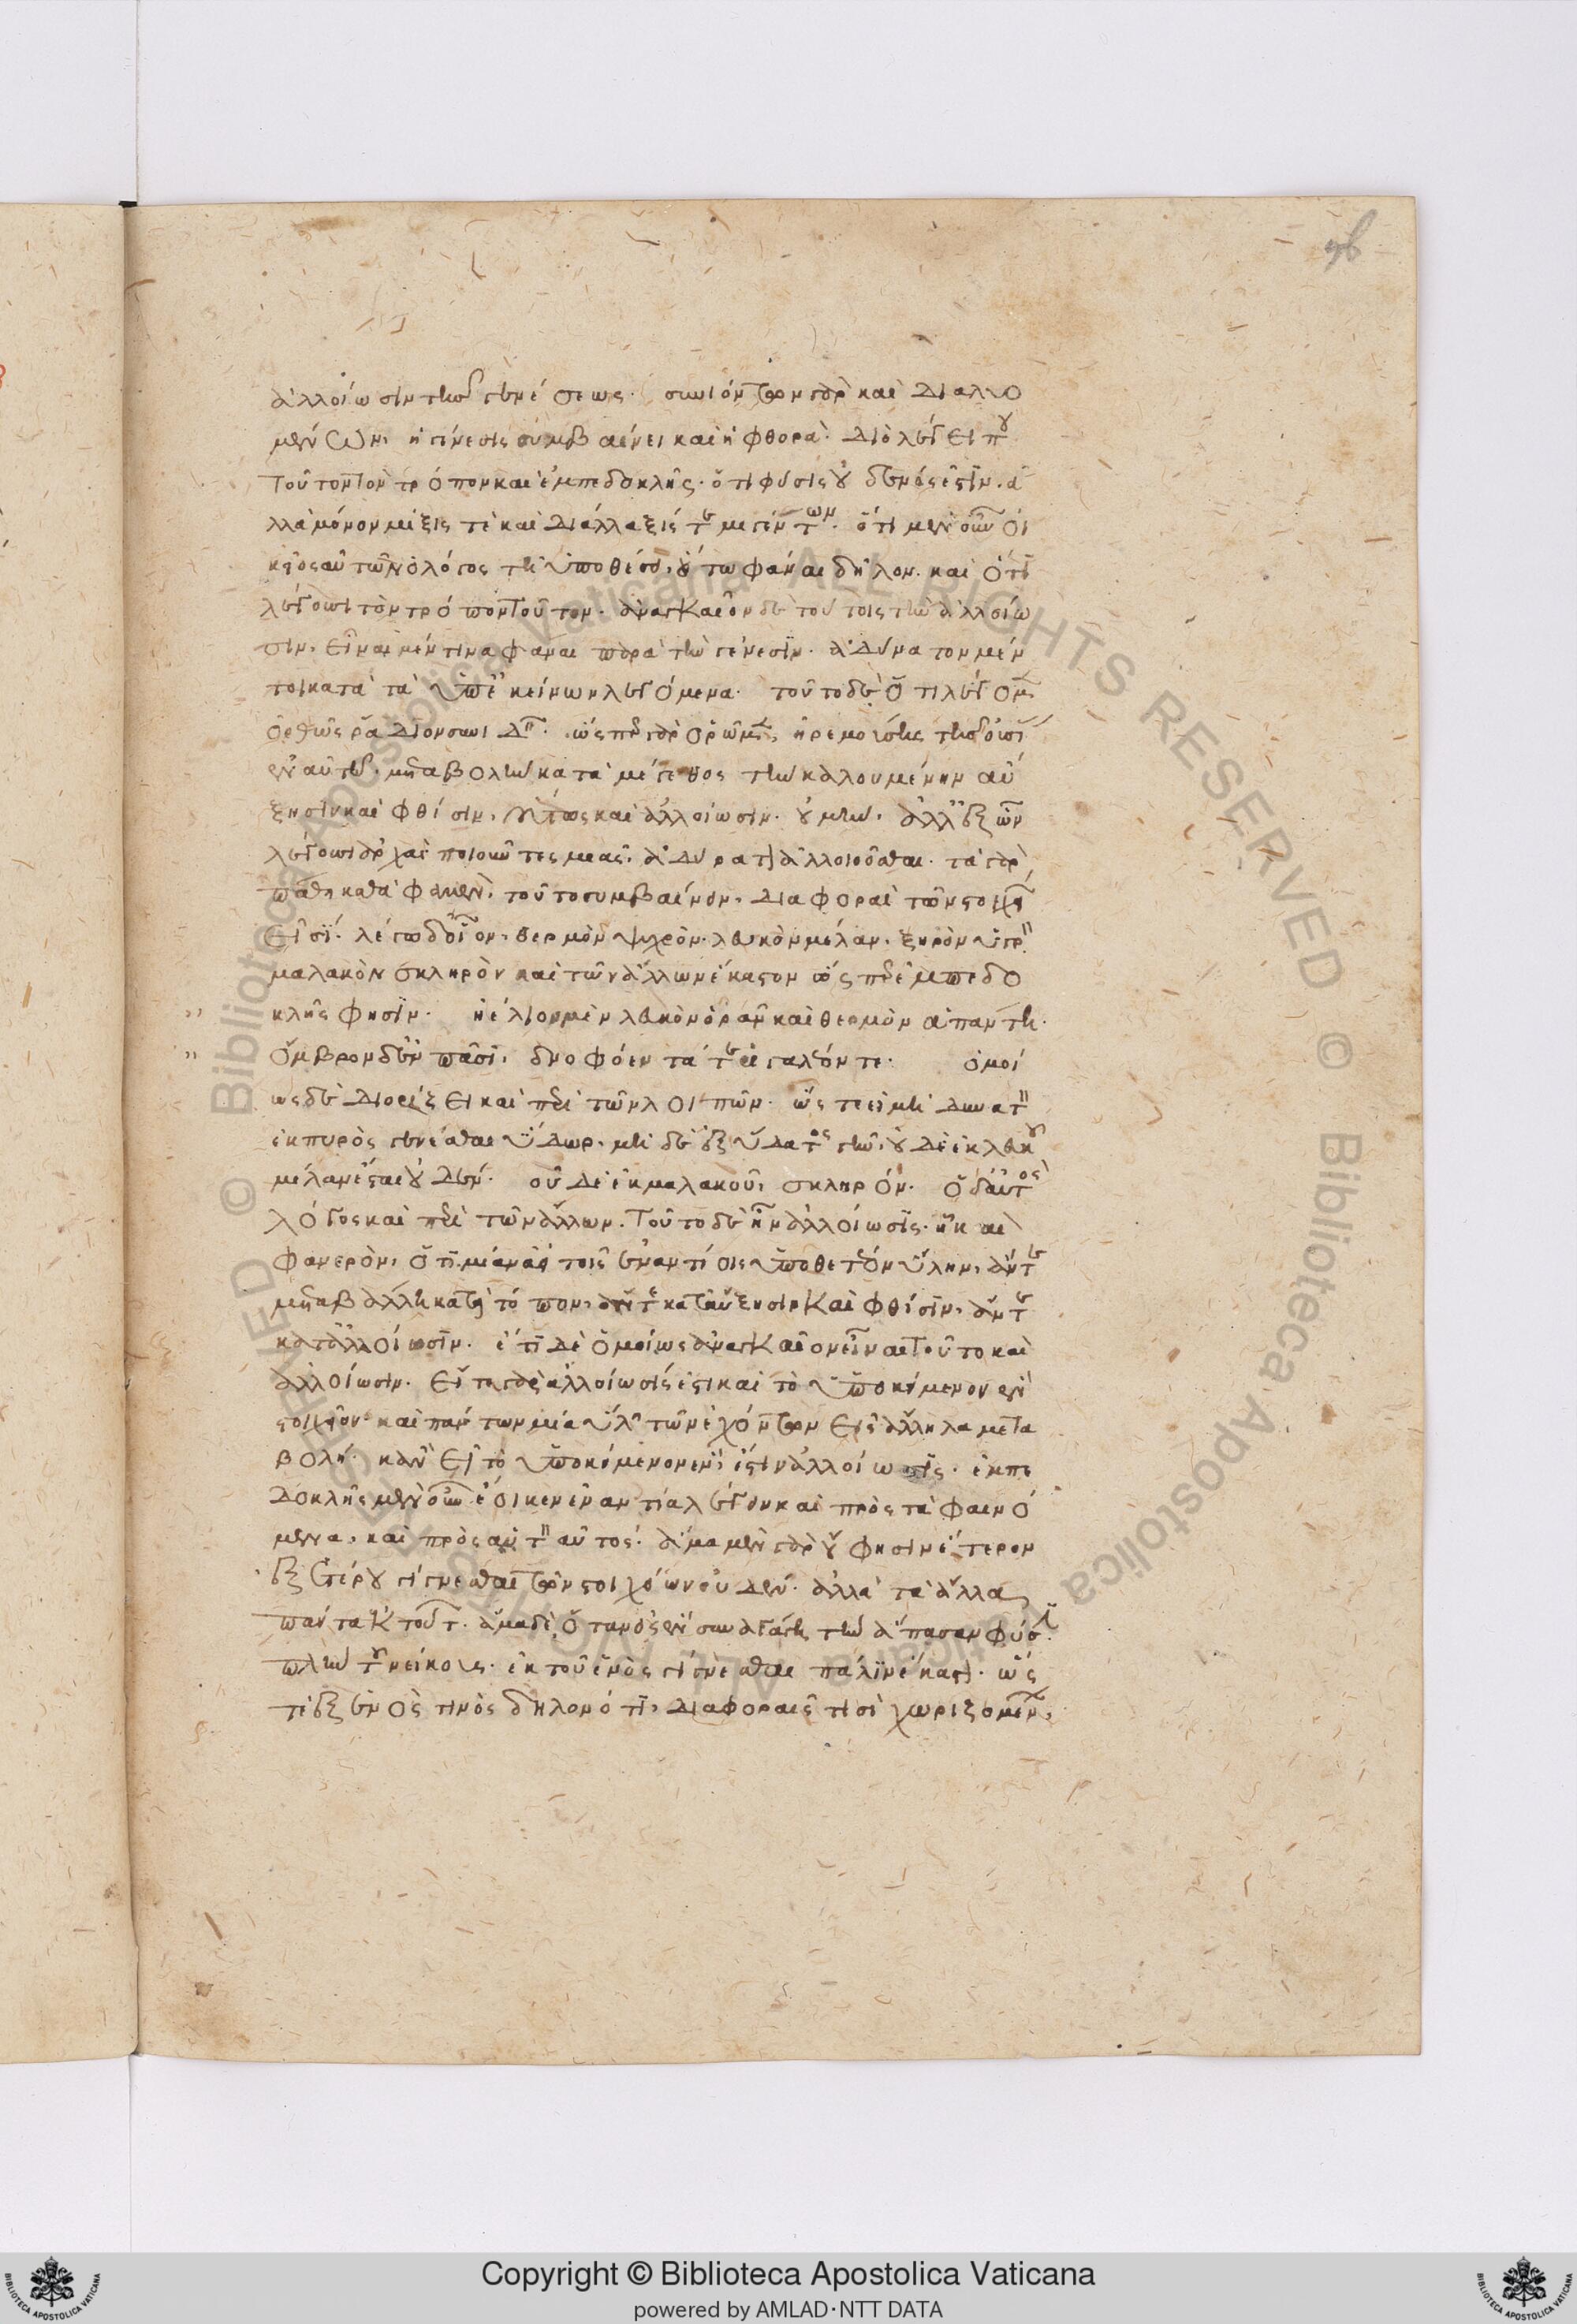 ἀλλοίωσιν τῆς γενέσεως. συνιόντων γὰρ καὶ διαλυο
μένων, ἡ γένεσις συμβαίνει καὶ ἡ φθορά. διὸ λέγει
τοῦτον τὸν τρόπον καὶ ἐμπεδοκλῆς. ὅτι φύσις οὐδενός ἐστιν. ἀ
λλὰ μόνον μίξις τε καὶ διάλλαξίς τε μιγέντων. ὅτι μὲν οὖν οἰ
κεῖος αὐτῶν ὁ λόγος τῇ ὑποθέσει, οὕτω φάναι δῆλον. καὶ ὅτι
λέγουσι τὸν τρόπον τοῦτον. ἀναγκαῖον δὲ τούτοις τὴν ἀλλοίω
σιν, εἶναι μέν τινα φάναι παρὰ τὴν γένεσιν. ἀδύνατον μέν
τοι κατὰ τὰ ὑπ' ἐκείνων λεγόμενα. τοῦτο δὲ ὅτι λέγομεν
ὀρθῶς ῥάδιον συνιδεῖν. ὥσπερ γὰρ ὁρῶμεν, ἠρεμούσης τῆς οὐσίας
ἐν αὐτῇ, μεταβολὴν κατὰ μέγεθος τὴν καλουμένην αὔ
ξησιν καὶ φθίσιν, οὕτως καὶ ἀλλοίωσιν. οὐ μὴν, ἀλλ' ἐξ ὧν
λέγουσιν ἀρχὰς ποιοῦντες μιᾶς, ἀδύνατον ἀλλοιοῦσθαι. τὰ γὰρ
πάθη καθ' ἃ φαμὲν, τοῦτο συμβαίνειν, διαφοραὶ τῶν στοιχείων
εἰσί. λέγω δ' οἷον, θερμὸν ψυχρόν. λευκὸν μέλαν. ξηρὸν ὑγρόν
μαλακὸν σκληρὸν καὶ τῶν ἄλλων ἕκαστον ὥσπερ ἐμπεδο
κλῆς φησίν. ἠέλιον μὲν λευκὸν ὁρᾶν καὶ θερμὸν ἁπάντῃ.
ὄμβρον δ' ἐν πᾶσι, δνοφόεντά τε ῥιγαλέον τε. ὁμοί
ως δὲ διορίζει καὶ περὶ τῶν λοιπῶν. ὥστε εἰ μὴ δυνατὸν
ἐκ πυρὸς γενέσθαι ὕδωρ, μὴ δὲ ἐξ ὕδατος γῆν, οὐδὲ ἐκ λευκοῦ
μέλαν ἔσται οὐδέν. οὐδὲ ἐκ μαλακοῦ, σκληρόν. ὁ δ' αὐτὸς
λόγος καὶ περὶ τῶν ἄλλων. τοῦτο δὲ ἦν ἀλλοίωσις. ἢ καὶ
φανερὸν, ὅτι μίαν ἀεὶ τοῖς ἐναντίοις ὑποθετέον ὕλην, ἄν τε
μεταβάλλῃ κατὰ τόπον, ἄν τε κατ' αὔξησιν καὶ φθίσιν, ἄν τε
κατ' ἀλλοίωσιν. ἔτι δὲ ὁμοίως ἀναγκαῖον εἶναι τοῦτο καὶ
ἀλλοίωσιν. εἴτε γὰρ ἀλλοίωσίς ἐστι καὶ τὸ ὑποκείμενον ἓν
στοιχεῖον. καὶ πάντων μία ὕλη τῶν ἐχόντων εἰς ἄλληλα μετα
βολήν. κἂν εἰ τὸ ὑποκείμενον ἓν, ἔστιν ἀλλοίωσις. ἐμπε
δοκλῆς μὲν οὖν ἔοικεν ἐναντία λέγειν καὶ πρὸς τὰ φαινό
μενα, καὶ πρὸς αὑτὸν αὐτός. ἅμα μὲν γὰρ οὔ φησιν ἕτερον
ἐξ ἑτέρου γίγνεσθαι τῶν στοιχείων οὐδέν. ἀλλὰ τὰ ἄλλα
πάντα ἐκ τούτων. ἅμα δὲ, ὅταν εἰς ἓν συναγάγῃ τὴν ἅπασαν φύσιν
πλὴν τοῦ νείκους. ἐκ τοῦ ἑνὸς γίγνεσθαι πάλιν ἕκαστον. ὥσ
τε ἐξ ἑνός τινος δῆλον ὅτι, διαφοραῖς τισὶ χωριζομένων,